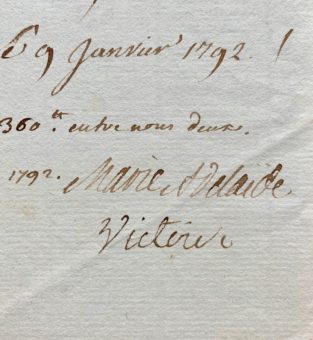 Le 9 Janvier 1792. /
360.tt entre nous deux.
1792. Marie Adelaide
Victoire